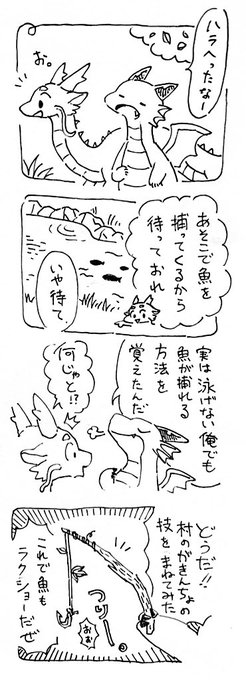 ハラへったなー
お。
あそこで魚を
捕ってくるから
待っておれ
いや待て、
実は泳げない俺でも
魚が捕れる
方法を
覚えたんだ
何じゃと!?
どうだ!!
村のがきんちょの
技をまねてみた
つりー。
おお
これで魚も
ラクショーだぜ